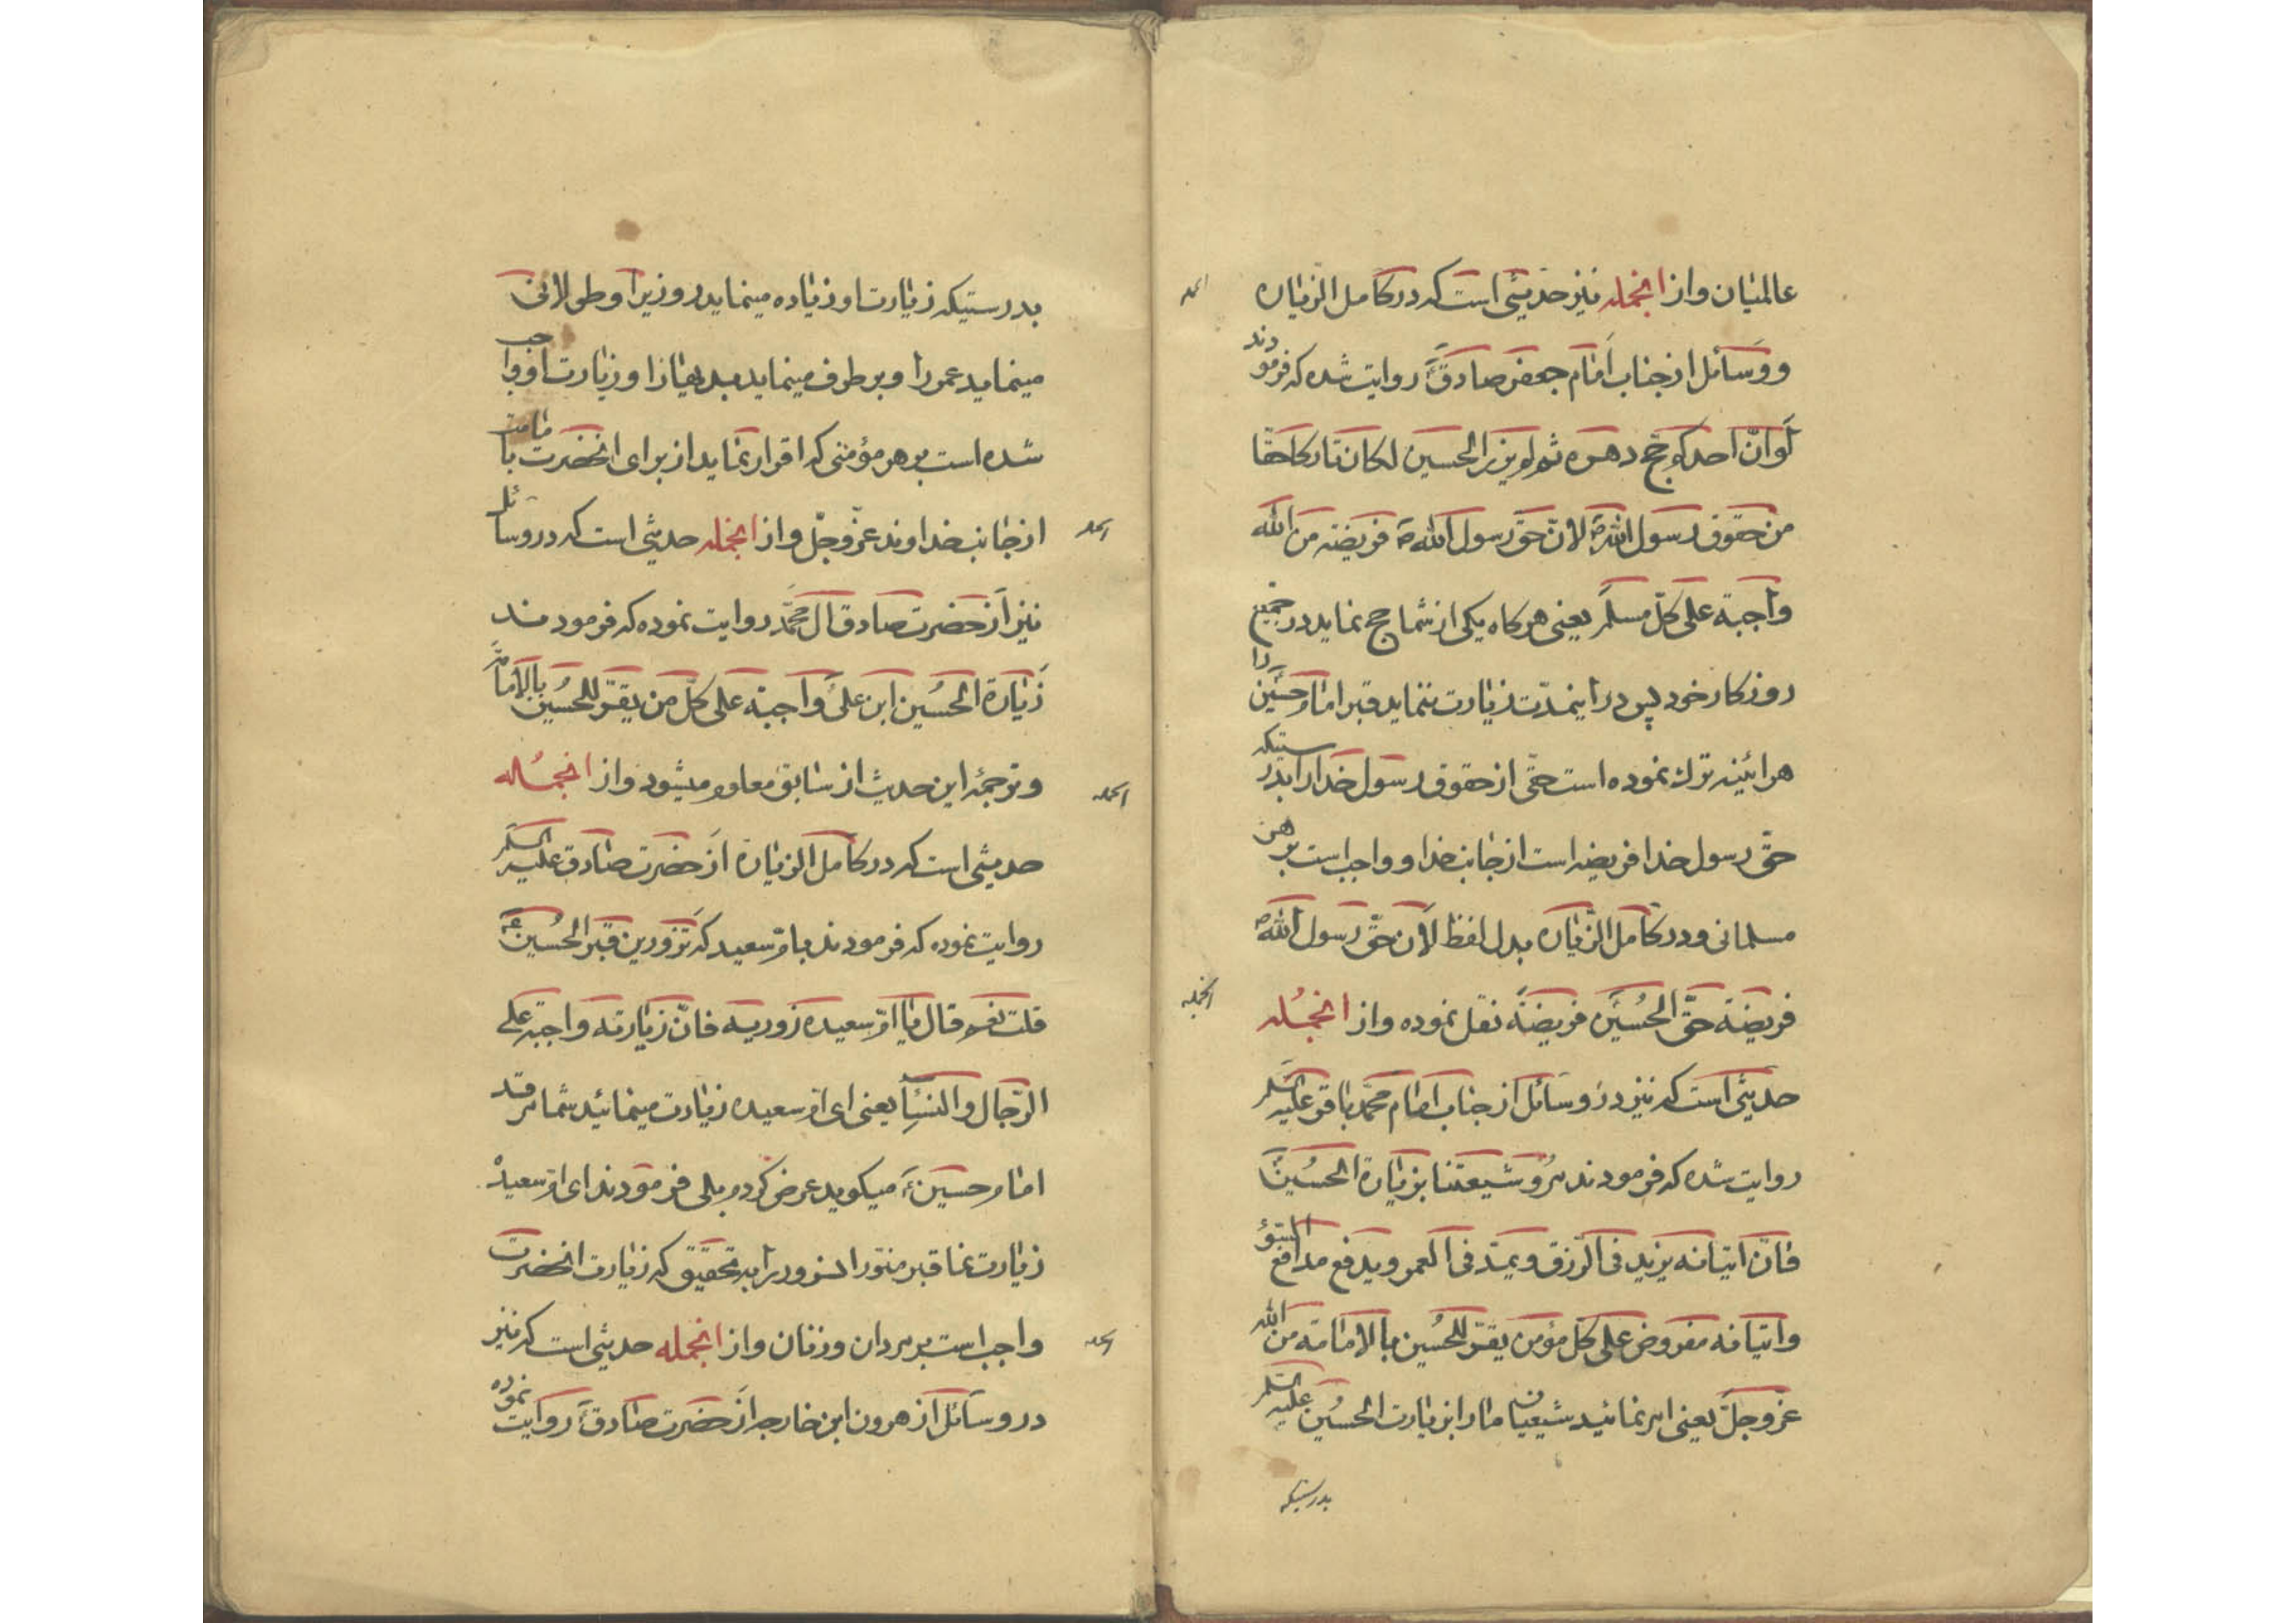 عالمیان و از انجمله نیز حدیثی است که در کامل الزیاره
و وسائل از جناب امام جعفر صادق ع روایت شده که فرمودند
لو ان احدکم حج دهره ثم لم یزر الحسین لکان تارکا حقا
من حقوق رسول الله ص لان حق رسول الله ص فریضة من الله
واجبة علی کل مسلم یعنی هرکاه یکی از شما حج نماید در جمیع
روزکار خود پس در اینمدت زیارت ننماید قبر امام حسین را
هرائینه ترک نموده است حقی از حقوق رسول خدا را بدرستیکه
حق رسول خدا فریضه است از جانب خدا و واجب است بر هر
مسلمانی و در کامل الزیاره بدل لفظ لان حق رسول الله ص
فریضة حق الحسین فریضة نقل نموده و از انجمله
حدیثی است که نیز در وسائل از جناب امام محمد باقر علیه السلم
روایت شده که فرمودند مروا شیعتنا بزیارة الحسین ع
فان اتیانه یزید فی الرزق و یمد فی العمر و یدفع مدافع السوء
و اتیانه مفروض علی کل مؤمن یقر للحسین بالامامة من الله
عز و جل یعنی امر نمائید شیعیان ما را بزیارت الحسین علیه السلم
بدرستیکه
بدرستیکه زیارت او زیاده مینماید روزیرا و طولانی
مینماید عمر را و برطرف مینماید بدیها را و زیارت او واجب
شده است بر هر مؤمنی که اقرار نماید از برای انحضرت بامامت
از جانب خداوند عز و جل و از انجمله حدیثی است که در وسائل
نیز از حضرت صادق ال محمد روایت نموده که فرمودند
زیارة الحسین ابن علی واجبة علی کل من یقر للحسین بالامامة
و ترجمۀ این حدیث از سابق معلوم میشود و از انجمله
حدیثی است که در کامل الزیارة از حضرت صادق علیه السلم
روایت نموده که فرمودند بام سعید که تزورین قبر الحسین ع
قلت نعم قال یا ام سعیده زوریه فان زیارته واجبة علی
الرجال و النساء یعنی ای ام سعیده زیارت مینمائید شما مرقد
امام حسین ع میکوید عرض کردم بلی فرمودند ای ام سعیده
زیارت نما قبر منور انسرور را بتحقیق که زیارت انحضرت
واجب است بر مردان و زنان و از انجمله حدیثی است که نیز
در وسائل از هرون ابن خارجه از حضرت صادق ع روایت نموده